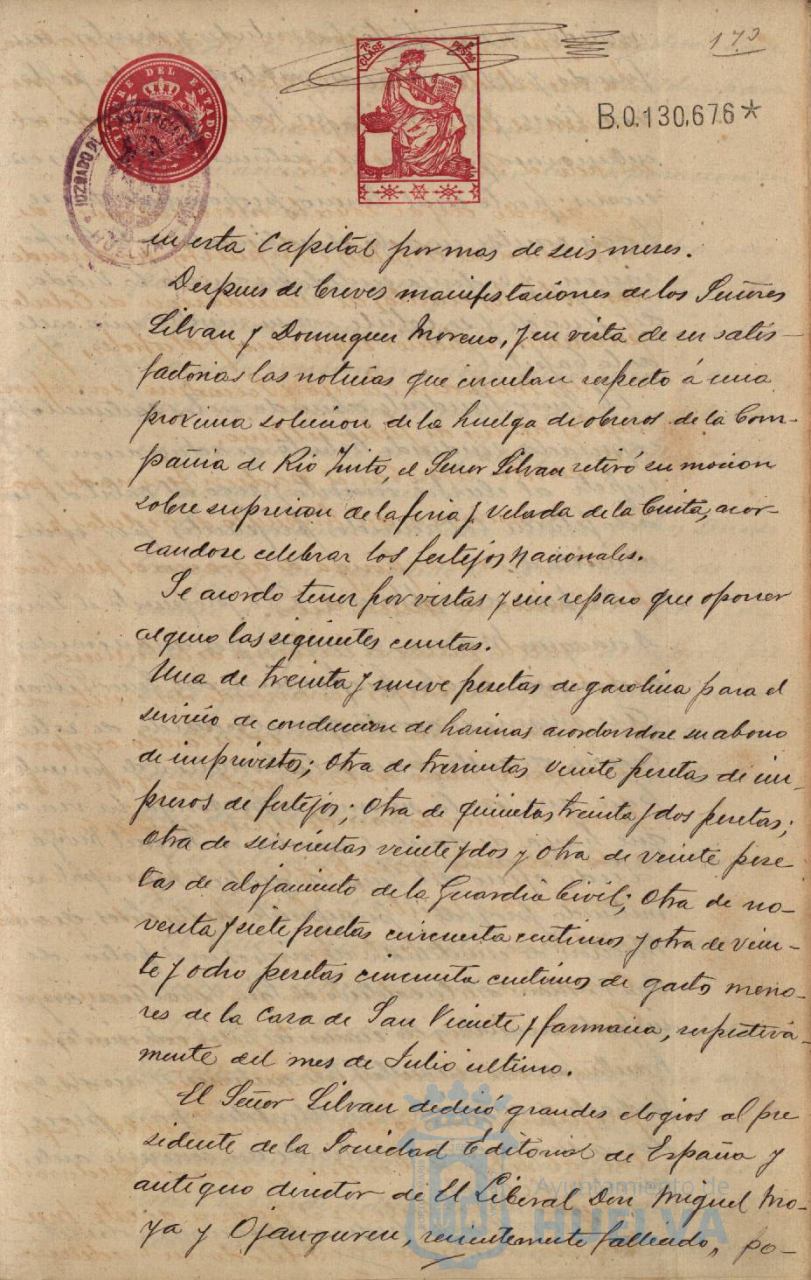 170
TIMBRE DEL ESTADO
7ª CLASE
PESETAS
B.0.130.676*
JUZGADO DE
HUELVA
en esta Capital por mas de seis meses.
Despues de breves manifestaciones de los Señores
Silvan y Dominguez Moreno, y en vista de ser satis-
factorias las noticias que circulan respecto á una
proxima solucion de la huelga de obreros de la Com-
pañia de Rio Tinto, el Señor Silvan retiró su mocion
sobre supresion de la feria y Velada de la Cinta, acor-
dandose celebrar los festejos nacionales.
Se acordo tener por vistas y sin reparo que oponer
alguno las siguientes cuentas.
Una de treinta y nueve pesetas de gasolina para el
servicio de conduccion de harinas acordandose su abono
de imprevistos; otra de trescientas veinte pesetas de im-
presos de festejos; otra de quinientas treinta y dos pesetas;
otra de seiscientas veinte y dos y otra de veinte pese
tas de alojamiento de la Guardia Civil; otra de no-
venta y siete pesetas cincuenta centimos y otra de vein-
te y ocho pesetas cincuenta centimos de gastos meno-
res de la Casa de San Vicente y farmacia, respectiva-
mente del mes de Julio ultimo.
El Señor Silvan dedicó grandes elogios al pre
sidente de la Sociedad Editorial de España y
antiguo director de El Liberal Don Miguel Mo-
ya y Ojanguren, recientemente fallecido, po-
Ayuntamiento de
HUELVA